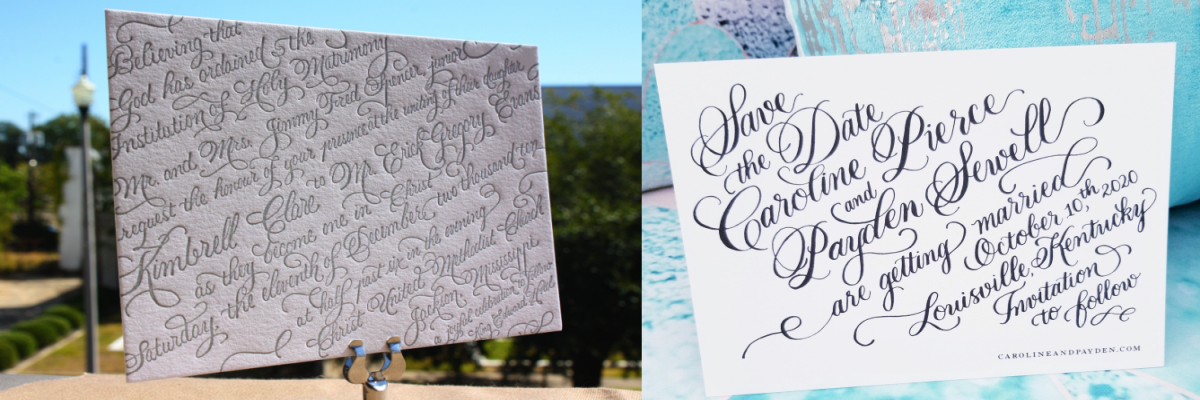 Believing that
God has ordained the
Institution of Holy Matrimony
Mr. and Mrs. Jimmy Fred Spencer, junior
request the honour of your presence at the uniting of their daughter
Kimbrell Clare to Mr. Erick Gregory Evans
as they become one in Christ
Saturday, the eleventh of December, two thousand ten
at half past six in the evening
Christ United Methodist Church
Jackson, Mississippi
a joyful celebration to follow
Save
the Date
Caroline Pierce
and
Payden Sewell
are getting married
October 10,th 2020
Louisville, Kentucky
Invitation
to follow
CAROLINEANDPAYDEN.COM